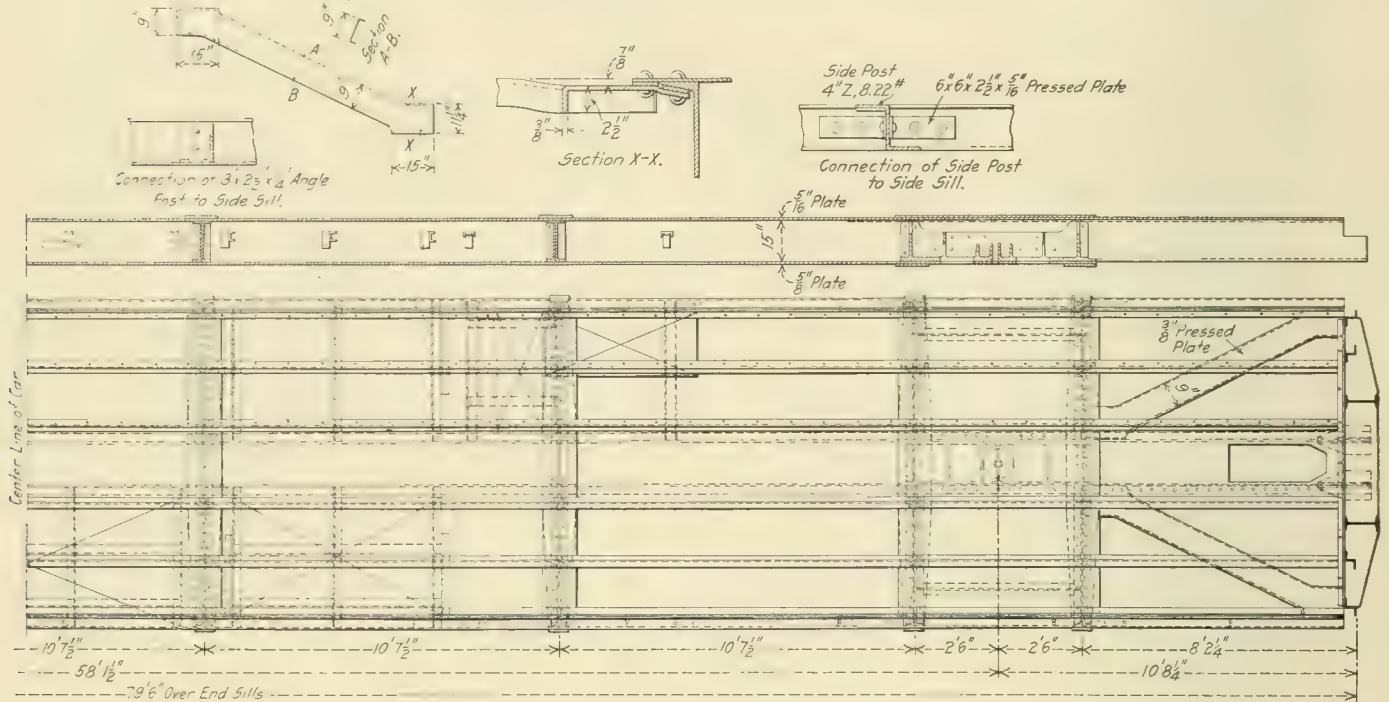 9"
15"
A
B
9"
Section
A-B.
9"
X
X
11 1/4"
15"
Connection of 3"x 2 1/2"x 1/4" Angle
Post to Side Sill.
7/8"
3/8"
2 1/2"
Section X-X.
Side Post
4" Z, 8.22#
6"x 6"x 2 1/2"x 5/16" Pressed Plate
Connection of Side Post
to Side Sill.
5/16" Plate
15"
5/8" Plate
3/8" Pressed
Plate
9"
Center Line of Car
10'7 1/2"
10'7 1/2"
10'7 1/2"
2'6"
2'6"
8'2 1/4"
58'1 1/2"
10'8 1/4"
9'6" Over End Sills